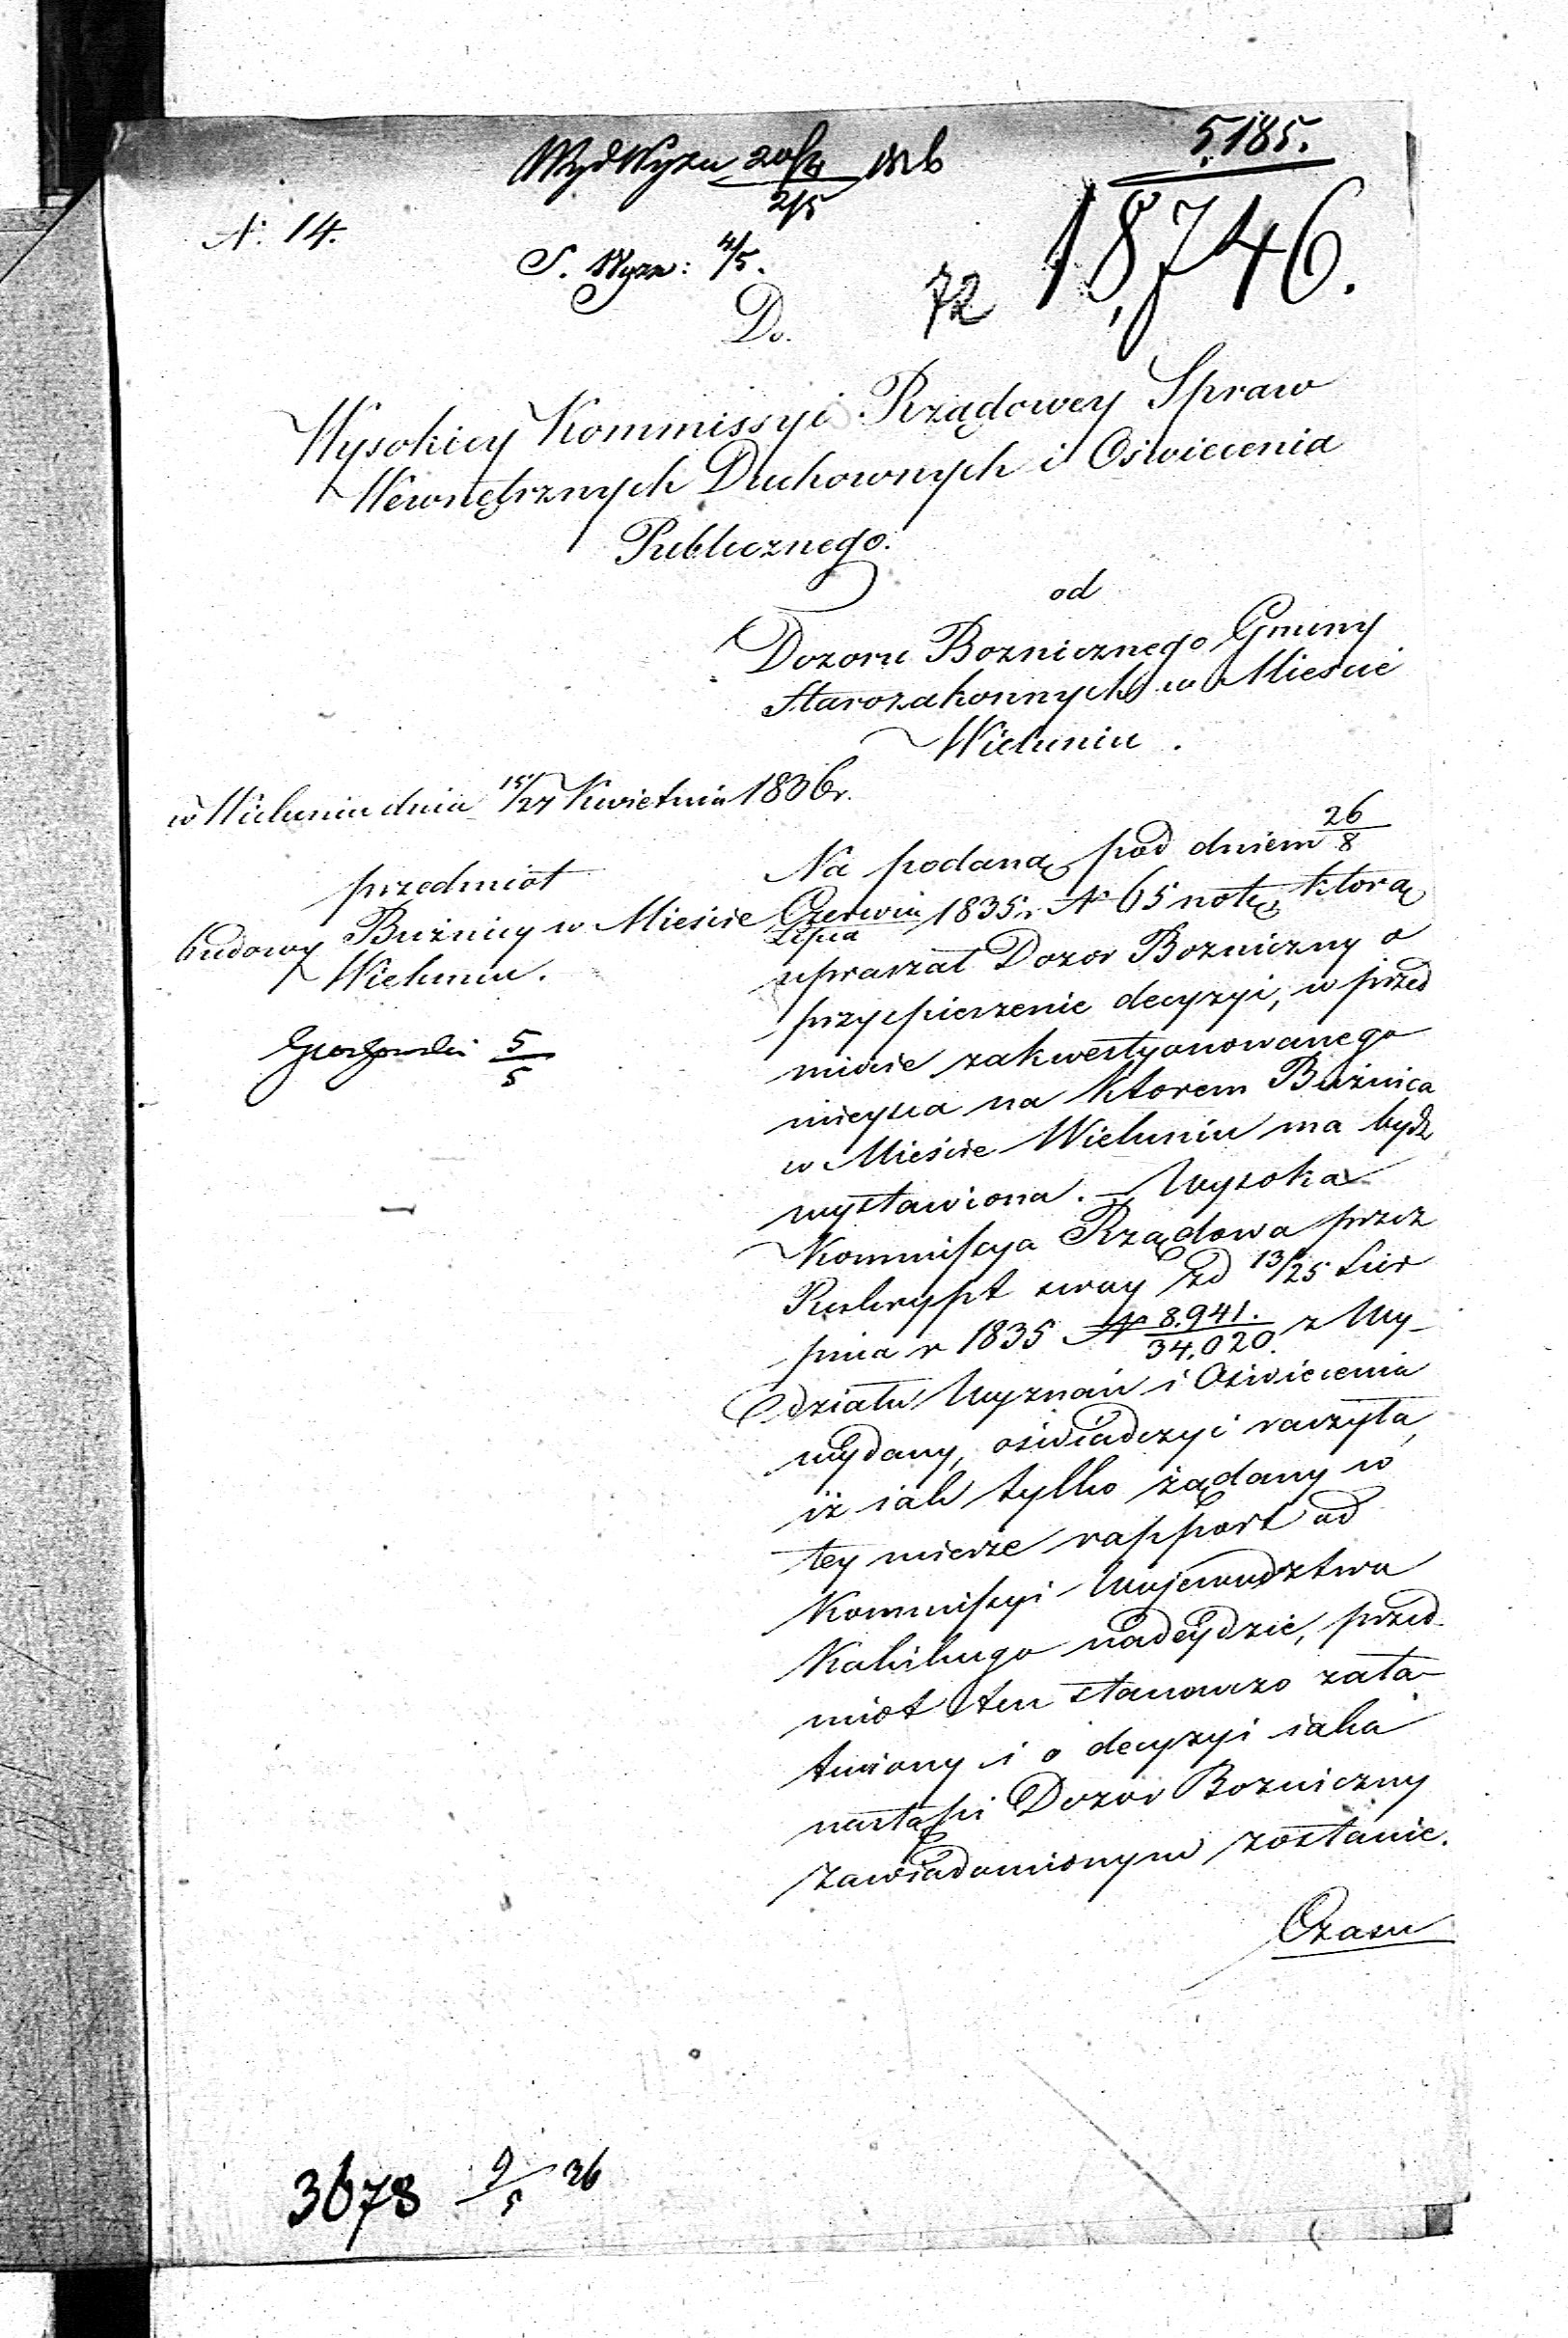 5,185.
Wyd Wyzn 20/4 2/5
18,746.
N: 14.
S. Wyzn: 4/5.
72
Do.
Wysokiey Kommissyi Rządowey Spraw
Wewnętrznych Duchownych i Oswiecenia
Publicznego.
od
Dozoru Boznicznego Gminy
Starozakonnych w Miescie
Wieluniu.
w Wieluniu dnia 15/27 Kwietnia 1836 r.
przedmiot
budowy Buźnicy w Mieście
Wieluniu.
5/5
Na podaną pod dniem 26/8
Czerwca/Lipca 1835 r. N° 65 notę, którą
upraszał Dozor Bozniczny o
przyspieszenie decyzyi, w przed
miocie zakwestyonowanego
mieysca na ktorem Buźnica
w Mieście Wieluniu ma bydź
wystawiona. – Wysoka
Kommissya Rządowa przez
Reskrypt swoy zd 13/25 Sier
pnia r 1835 N 8,941./34,020. z Wy-
działu Wyznań i Oświecenia
wydany, oświadczyć raczyła,
iż iak tylko żądany w
tey mierze rapport od
Kommissyi Wojewudztwa
Kaliskiego nadeydzie, przed-
miot ten stanowczo zała-
twiony i o decyzyi iaka
nastąpi Dozor Bozniczny
zawiadomionym zostanie.
Czasu
3678 9/5 36